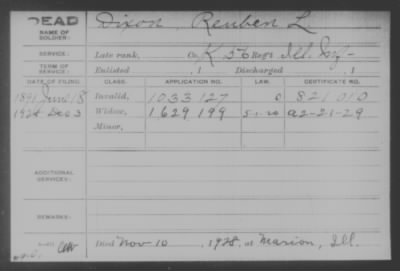 DEAD Dixon, Reuben L
NAME OF SOLDIER:
SERVICE: Late rank, Co. K 56 Regt Ill. Inf-
TERM OF SERVICE: Enlisted , 1 Discharged , 1
DATE OF FILING. CLASS. APPLICATION NO. LAW. CERTIFICATE NO.
1891 June 18 Invalid, 1033127 821010
1928 Dec 3 Widow, 1629199 5-1-20 A2-21-29
Minor,
ADDITIONAL SERVICES:
REMARKS:
Died Nov 10, 1928, at Marion, Ill.